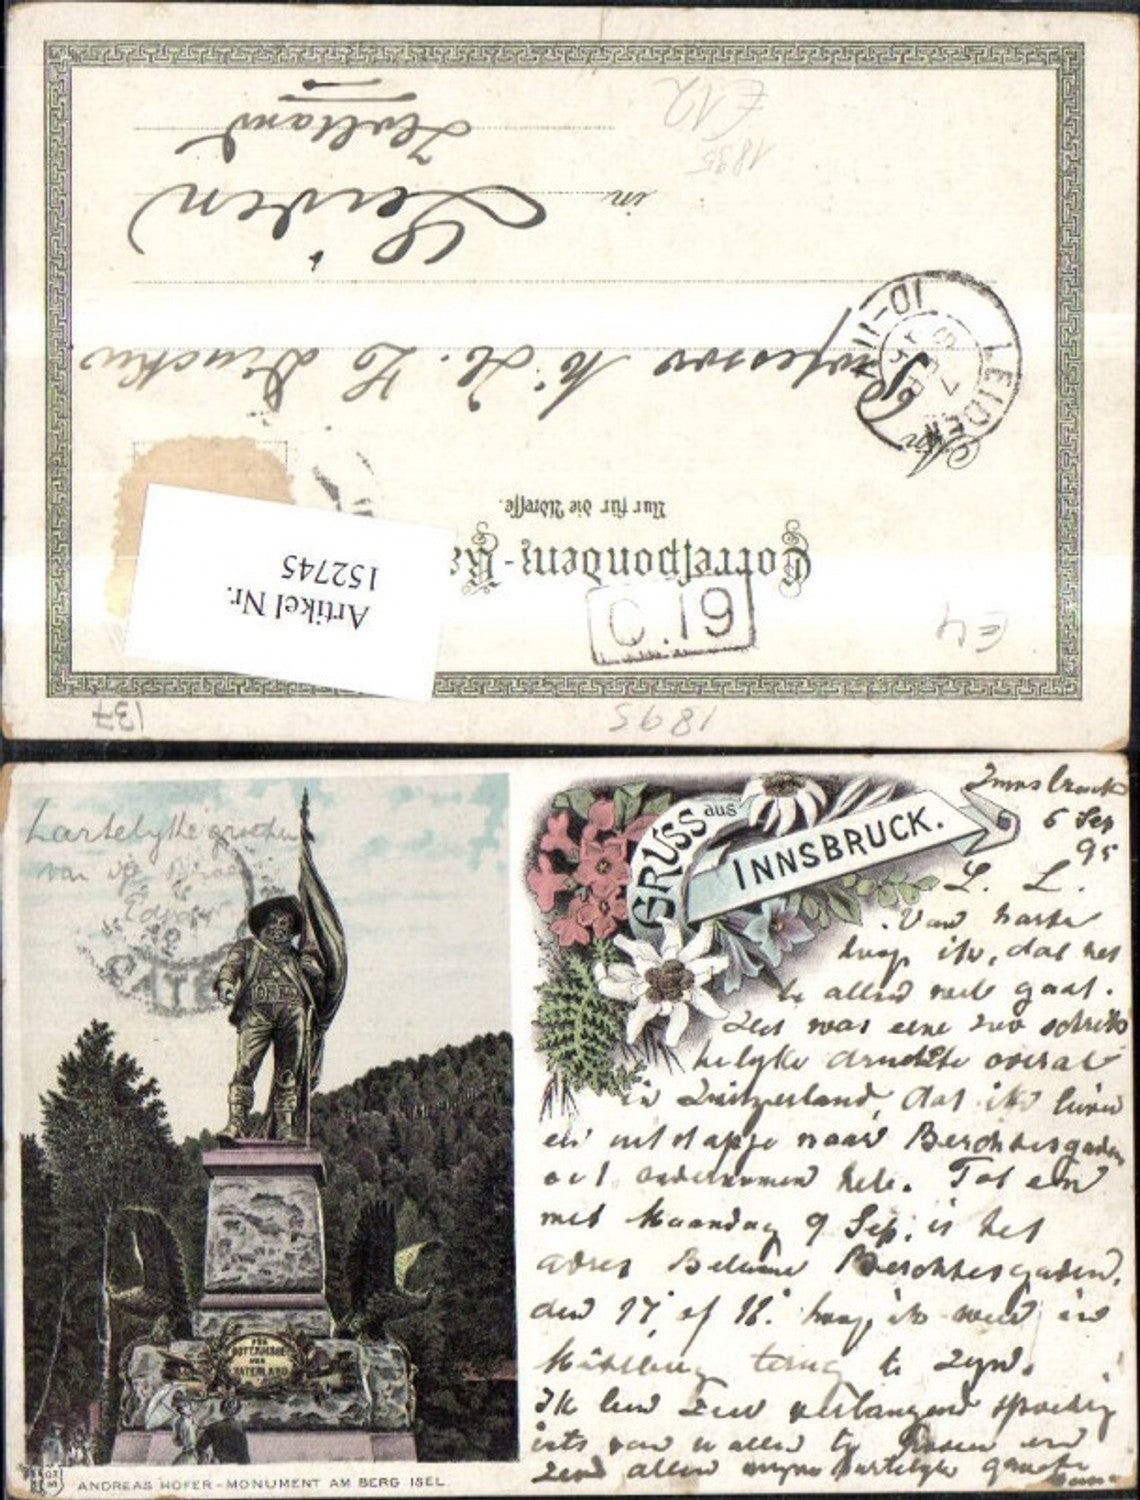 Correspondenz-Ka
Nur für die Adresse.
An Professor
in Leiden
Holland
LEIDEN
7 SEP
10-11
C.19
Artikel Nr.
152745
1895
1895
137
GRUSS aus INNSBRUCK.
Innsbruck
6 Sep
95
L. L.
Van harte
hoop ik, dat het
te allen wel gaat.
Het was eene zoo schrik
kelyke drukte overal
in Zwitserland, dat ik liever
een uitstapje naar Berchtesgaden
ondernomen heb. Tot en
met Maandag 9 Sep. is het
adres Berchtesgaden,
den 17 of 18. hoop ik weer in
terug te zyn.
Ik ben zeer verlangend spoedig
iets van u allen te en
zend allen myne hartelyke groeten
Hartelyke groeten
FÜR
GOTT KAISER
UND
VATERLAND
ANDREAS HOFER-MONUMENT AM BERG ISEL.